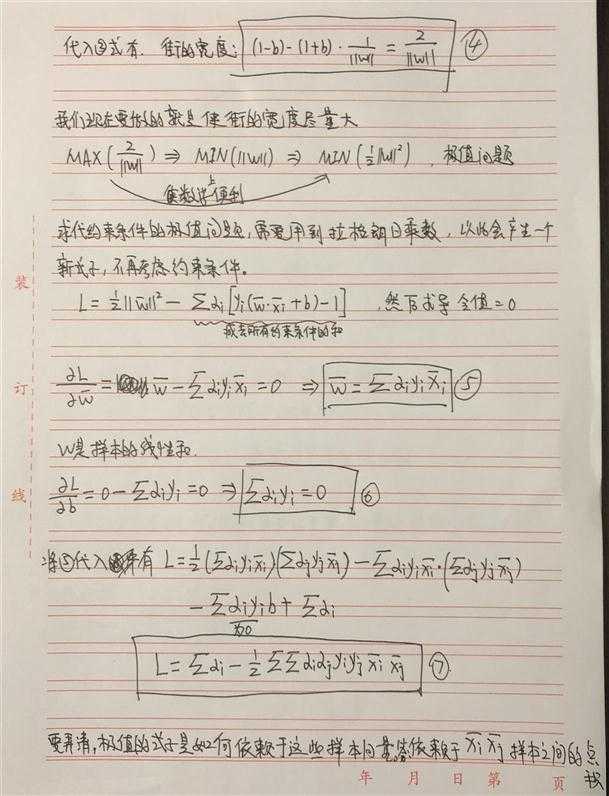 代入③式有. 街的宽度: (1-b)-(1+b)·1/||w|| = 2/||w|| ④
我们现在要做的就是使街的宽度尽量大
MAX(2/||w||) ⇒ MIN(||w||) ⇒ MIN(½||w||²) , 极值问题
使数学上便利
求代约束条件的极值问题, 需要用到拉格朗日乘数, 以此会产生一个
新式子, 不再考虑约束条件。
L = ½||w̅||² - ∑αi[yi(w̅·x̅i+b)-1] , 然后求导令值=0
减去所有约束条件的和
装
∂L/∂w̅ = w̅ - ∑αiyix̅i = 0 ⇒ w̅ = ∑αiyix̅i ⑤
订
W是样本的线性和.
∂L/∂b = 0 - ∑αiyi = 0 ⇒ ∑αiyi = 0 ⑥
线
将⑤代入 有 L = ½(∑αiyix̅i)(∑αjyjx̅j) - ∑αiyix̅i·(∑αjyjx̅j)
- ∑αiyib + ∑αi
为0
L = ∑αi - ½∑∑αiαjyiyjx̅ix̅j ⑦
要弄清, 极值的式子是如何依赖于这些样本向量 依赖于 x̅ix̅j 样本之间的点
年 月 日 第 页